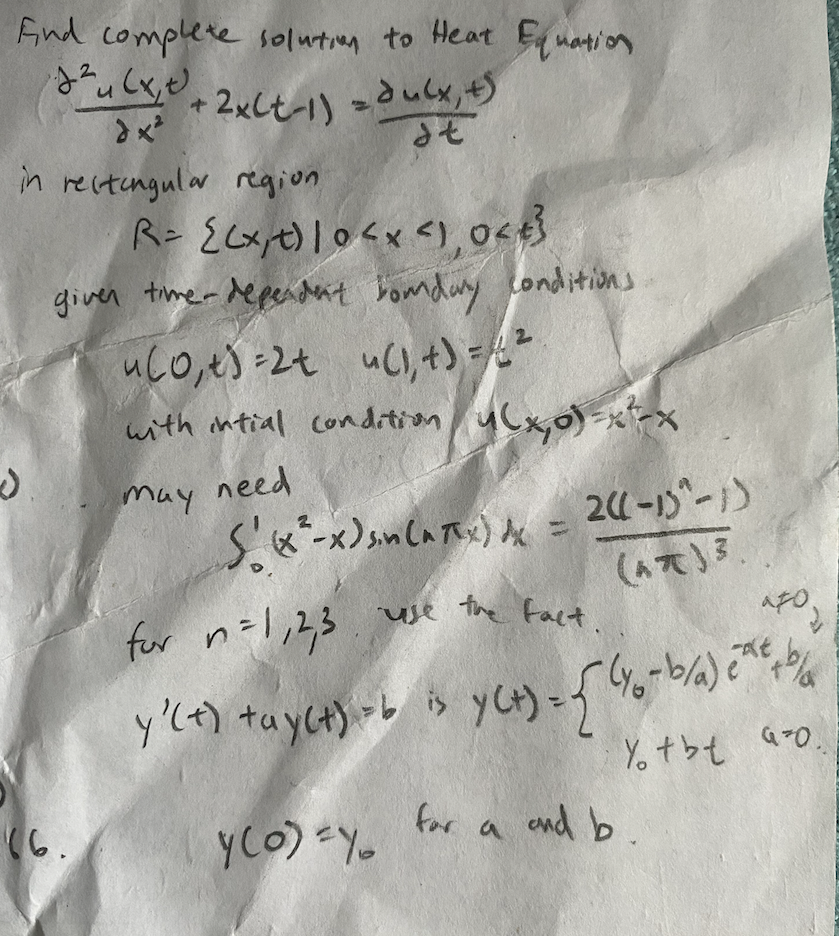 Find complete solution to Heat Equation
∂²u(x,t)/∂x² + 2x(t-1) = ∂u(x,t)/∂t
in rectangular region
R= {(x,t) | 0<x<1, 0<t}
given time-dependent boundary conditions
u(0,t)=2t u(1,t)=t²
with intial condition u(x,0)=x²-x
may need
∫₀¹ (x²-x) sin(nπx) dx = 2((-1)ⁿ-1)/(nπ)³
for n=1,2,3 use the fact.
y'(t) + ay(t)=b is y(t) = { (y₀-b/a) e^-at + b/a a≠0,
y₀+bt a=0.
66. y(0)=y₀ for a and b.